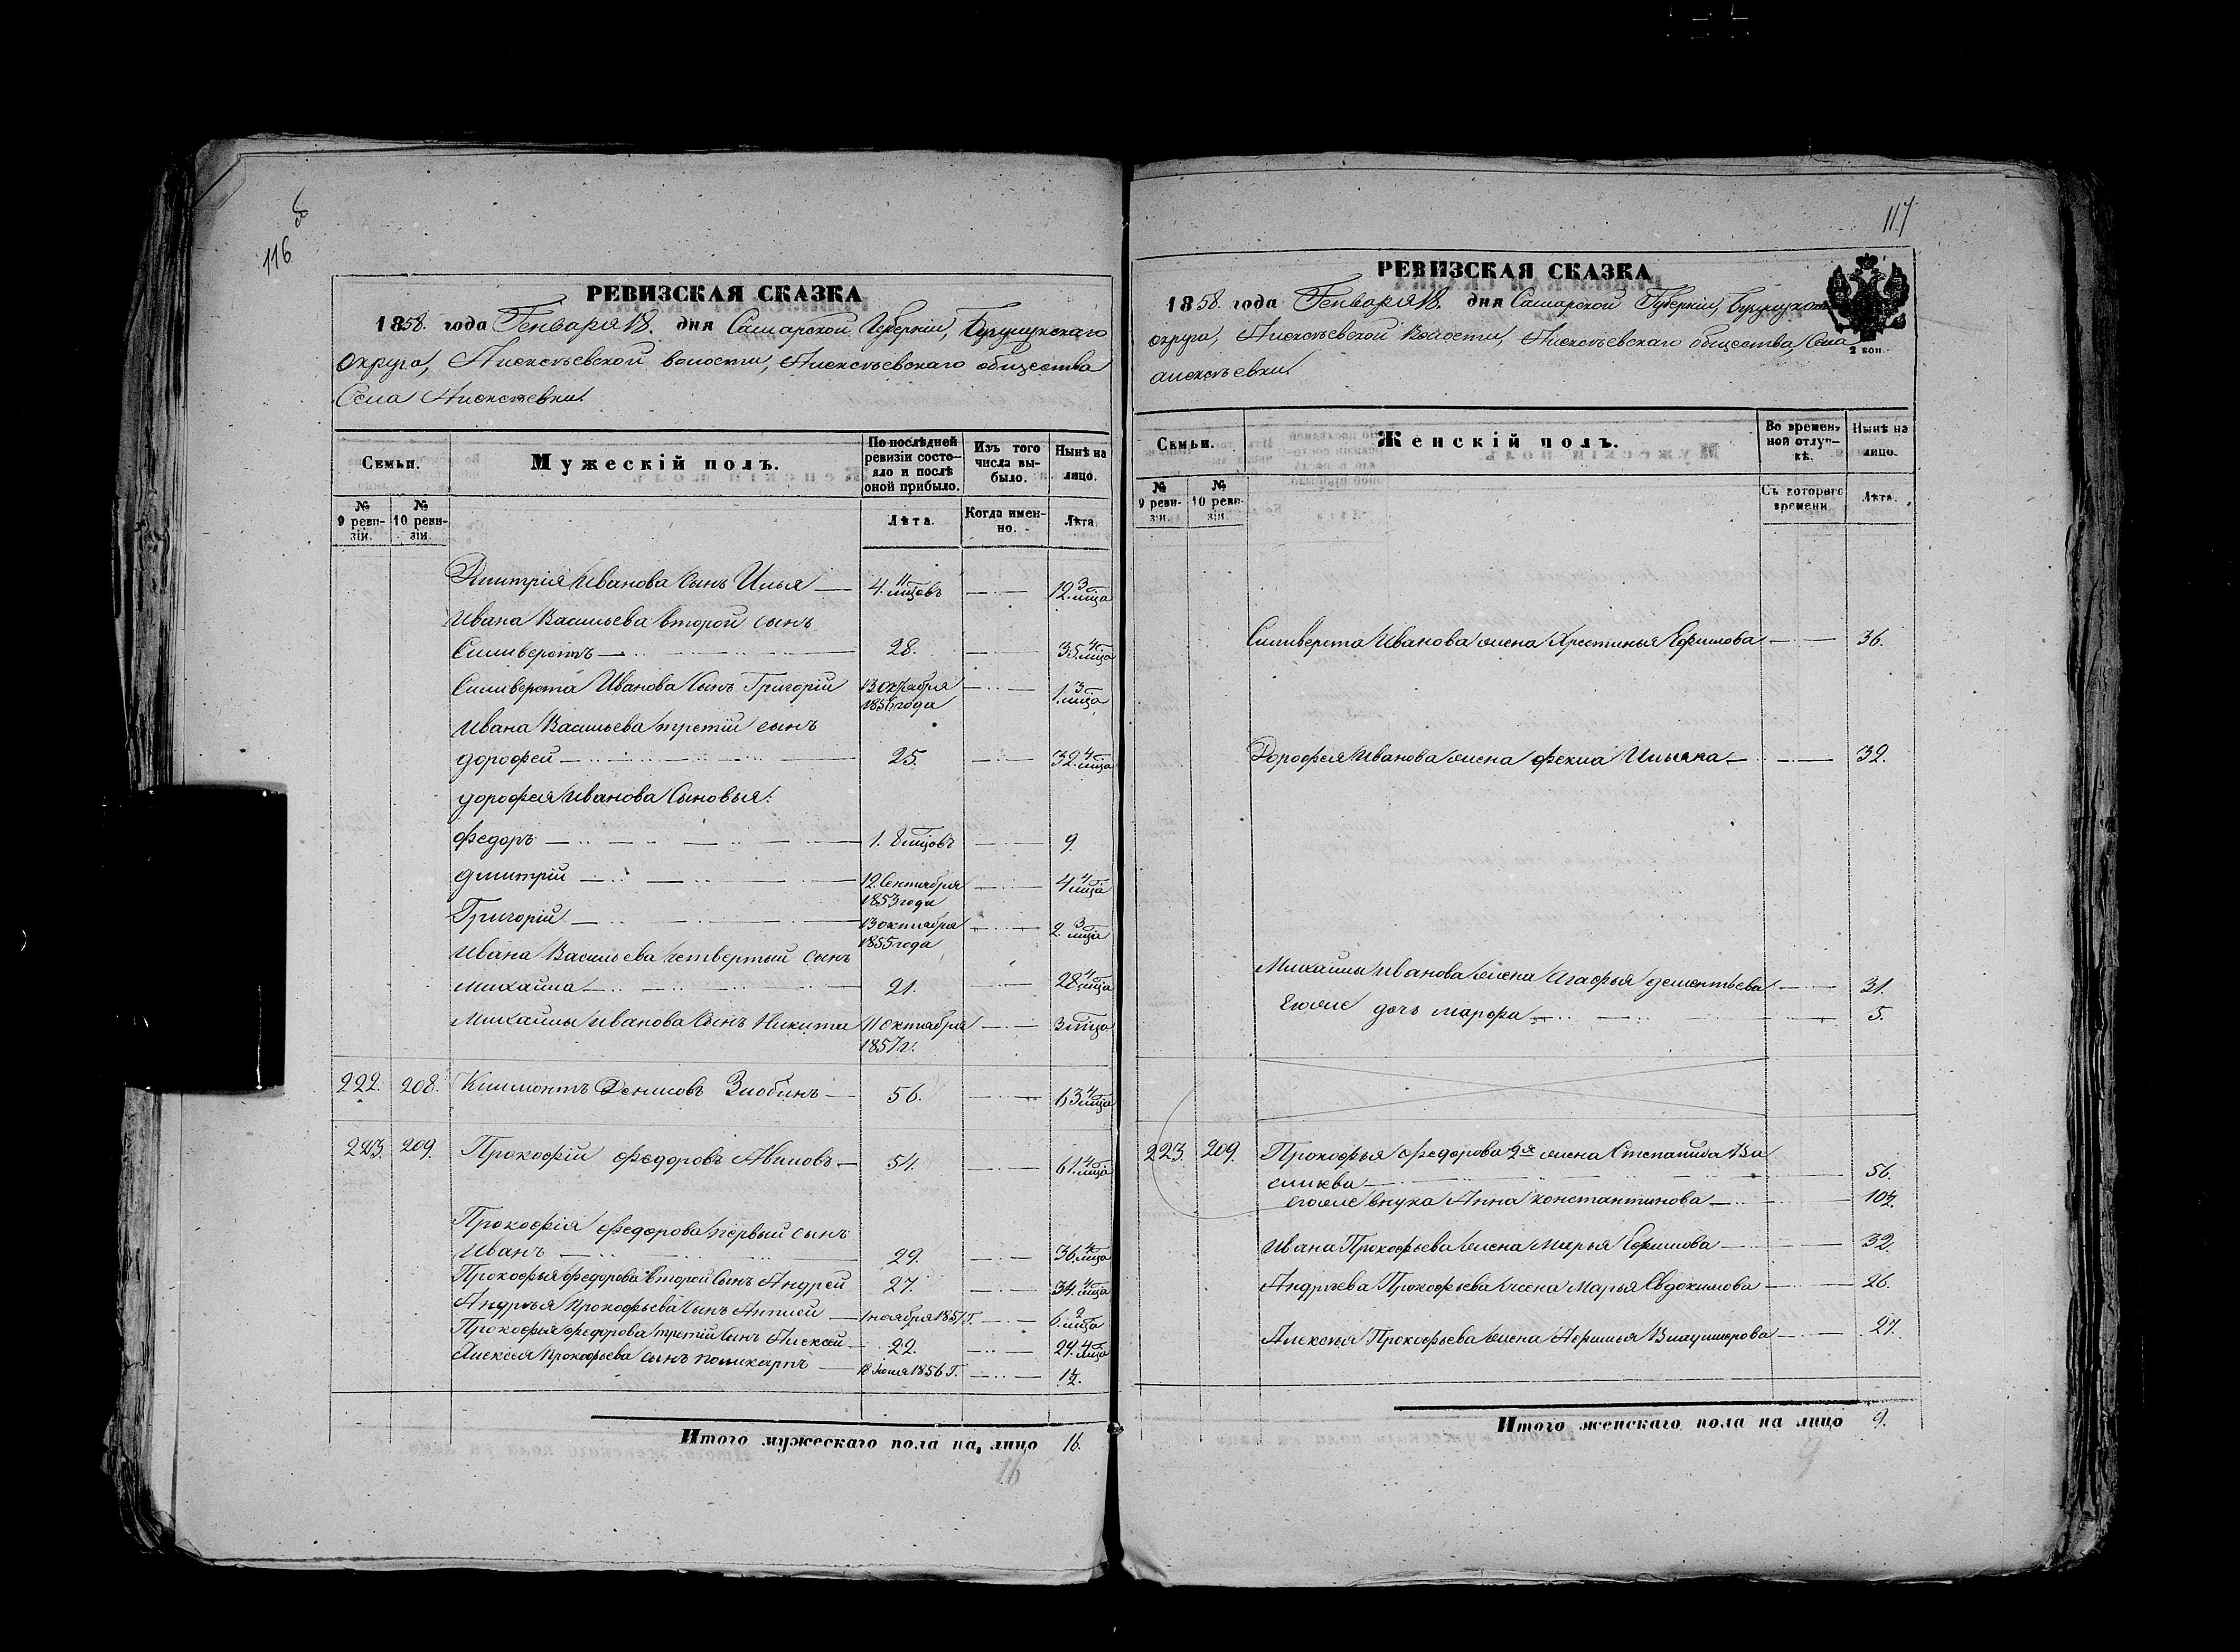 116
РЕВИЗСКАЯ СКАЗКА
1858. года Генваря 18. дня Самарской Губерніи, Бузулукскаго
округа, Алексѣевской волости, Алексѣевскаго общества
Села Алексѣевки.
Семьи.
Мужескій полъ.
По послѣдней ревизіи состояло и послѣ оной прибыло.
Изъ того числа выбыло.
Нынѣ на лицо.
№ 9 ревизіи.
№ 10 ревизіи.
Лѣта.
Когда именно.
Лѣта
Дмитрія Иванова сынъ Илья — 4. 11 мцовъ — 12. 3 мца
Ивана Васильева второй сынъ
Силиверстъ — 28. — 35. 4 мца
Силиверста Иванова сынъ Григорій 13 октября 1856 года — 1. 3 мца
Ивана Васильева третій сынъ
дорофей — 25. — 32. 4 мца
дорофея Иванова сыновья:
Федоръ — 1. 8 мцовъ — 9.
дмитрій — 12. Сентября 1853 года — 4 4 мца
Григорій — 13 октября 1855 года — 2. 3 мца
Ивана Васильева четвертый сынъ
михаила — 21. — 28. 4 мца
Михаилы Иванова сынъ Никита 11 октября 1857 г. — 3 мца
222. 208. Климонтъ Денисовъ Злобинъ — 56. — 63 4 мца
223. 209. Прокофій Федоровъ Авиловъ — 54. — 61. 4 мца
Прокофія Федорова первый сынъ
Иванъ — 29. — 36. 4 мца
Прокофья Федорова второй сынъ Андрей 27. — 34. 4 мца
Андрѣя Прокофьева сынъ — 1 ноября 1851 г. — 6. 2 мца
Прокофья Федорова третій сынъ Алексей — 22. — 29. 4 мца
Алексея Прокофьева сынъ поликарпъ — 1856 г. — 1½.
Итого мужескаго пола на лицо 16.
16
117
РЕВИЗСКАЯ СКАЗКА
1858. года Генваря 18. дня Самарской Губерніи, Бузулукскаго
округа, Алексѣевской волости, Алексѣевскаго общества, Села
алексѣевки.
2 коп.
Семьи.
Женскій полъ.
Во временной отлучкѣ.
Нынѣ на лицо.
№ 9 ревизіи.
№ 10 ревизіи.
Съ котораго времени
Лѣта.
Силиверста Иванова жена Хрестинья Ефимова — 36.
Дорофея Иванова жена фекла Ильина — 32.
Михаилы Иванова жена Агафья дементьева — 31.
Еюже дочь марфа — 5.
223. 209. Прокофья Федорова 2я жена Степанида Ва
сильева — 56.
егоже внука Анна константинова — 10½.
Ивана Прокофьева жена Марья Ефимова — 32.
Андрѣева Прокофьева жена Марья Евдокимова — 26.
Алексѣя Прокофьева жена — 27.
Итого женскаго пола на лицо 9.
9